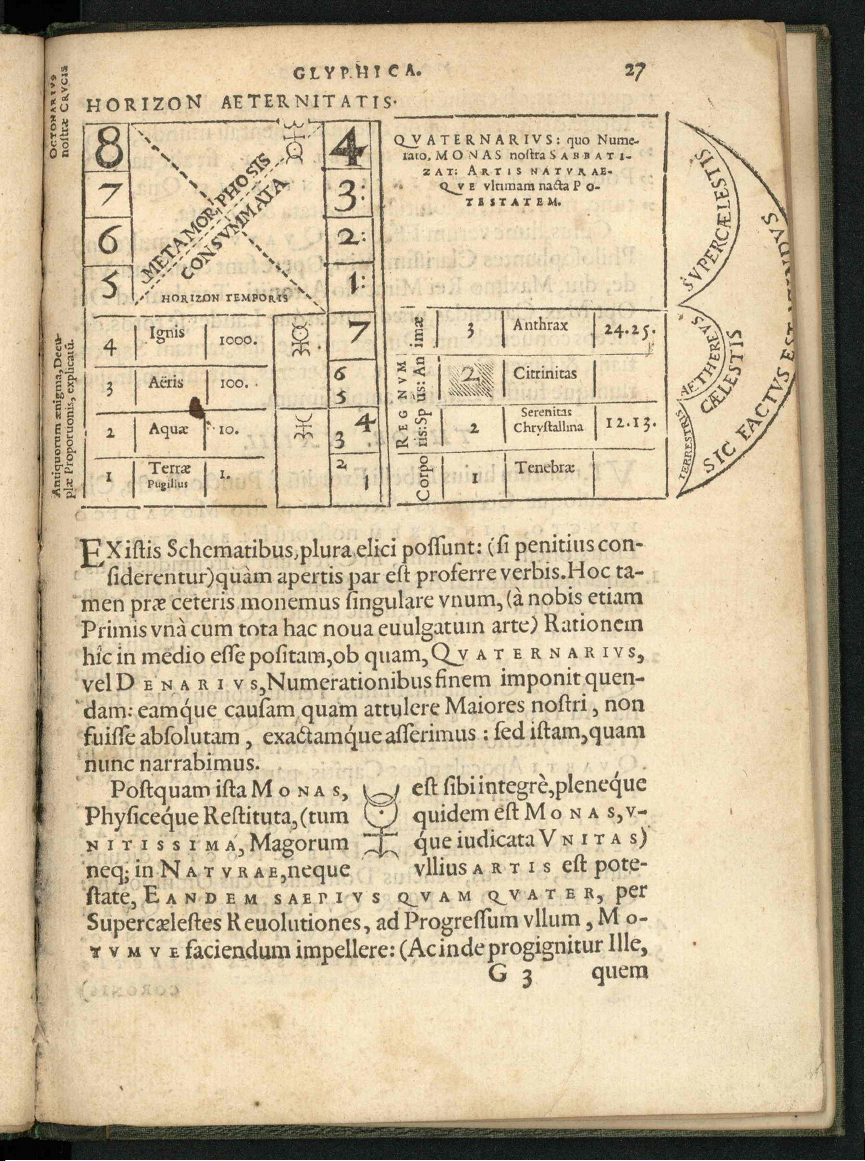 GLYPHICA. 27
HORIZON AETERNITATIS.
OCTONARIVS
nostræ CRVCIS
8
7
6
5
METAMORPHOSIS
CONSVMMATA
HORIZON TEMPORIS
4
3:
2:
1:
QVATERNARIVS: quo Nume-
rato, MONAS nostra SABBATI-
ZAT: ARTIS NATVRAE-
QVE vltimam nacta PO-
TESTATEM.
SVPERCÆLESTIS
ÆTHEREVS
CÆLESTIS
TERRESTRIS
SIC FACTVS EST
Antiquorum ænigma, Decu-
plæ Proportionis, explicatū.
4 Ignis 1000.
3 Aëris 100.
2 Aquæ 10.
1 Terræ Pugillus 1.
7
6
5
4
3
2
1
REGNVM
Corporis: Spūs: Animæ
3 Anthrax 24.25.
2 Citrinitas
2 Serenitas Chrystallina 12.13.
1 Tenebræ
EX istis Schematibus, plura elici possunt: (si penitius con-
siderentur) quàm apertis par est proferre verbis. Hoc ta-
men præ ceteris monemus singulare vnum, (à nobis etiam
Primis vnà cum tota hac noua euulgatum arte) Rationem
hîc in medio esse positam, ob quam, QVATERNARIVS,
vel DENARIVS, Numerationibus finem imponit quen-
dam: eamq́ue causam quam attulere Maiores nostri, non
fuisse absolutam, exactamq́ue asserimus: sed istam, quam
nunc narrabimus.
Postquam ista MONAS, est sibi integrè, pleneq́ue
Physiceq́ue Restituta, (tum quidem est MONAS, V-
NITISSIMA, Magorum q́ue iudicata VNITAS)
neq; in NATVRAE, neque vllius ARTIS est pote-
state, EANDEM SAEPIVS QVAM QVATER, per
Supercælestes Reuolutiones, ad Progressum vllum, MO-
TVMVE faciendum impellere: (Ac inde progignitur Ille,
G 3 quem